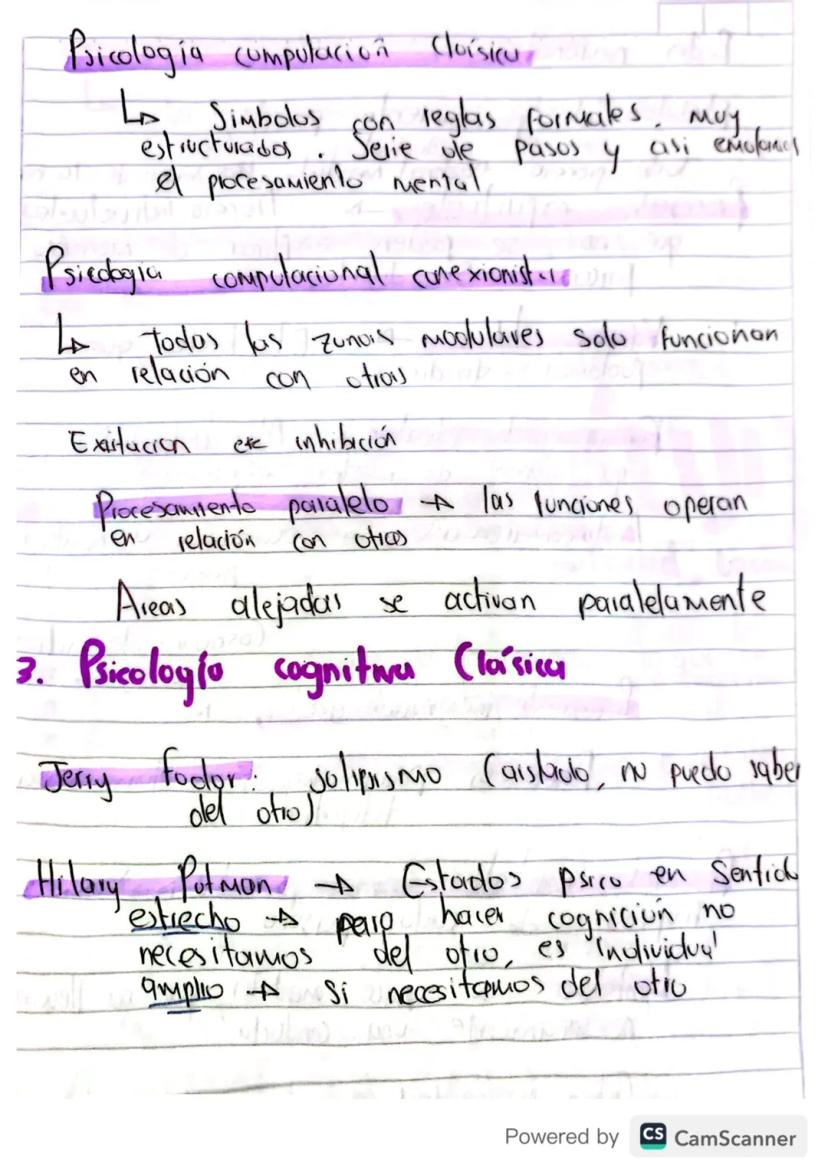 Psicología computación Clásica
↳ Simbolos con reglas formales. Muy
estructurados. Serie de pasos y asi emulamos
el procesamiento mental
Psicologia computacional conexionista
↳ todas las zonas modulares solo funcionan
en relación con otras
Exitacion e inhibición
Procesamiento paralelo → las funciones operan
en relación con otras
Areas alejadas se activan paralelamente
3. Psicología cognitiva Clásica
Jerry fodor: solipsismo (aislado, no puedo saber
del otro)
Hilary Putman → Estados psico en Sentido
estrecho → para hacer cognición no
necesitamos del otro, es individual
amplio → Si necesitamos del otro
Powered by CS CamScanner